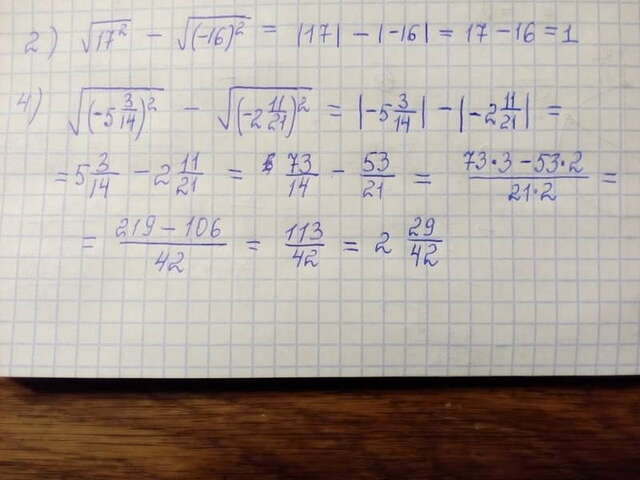 2) √17² − √(-16)² = |17| − |-16| = 17 − 16 = 1
4) √(-5 3/14)² − √(-2 11/21)² = |-5 3/14| − |-2 11/21| =
= 5 3/14 − 2 11/21 = 73/14 − 53/21 = (73·3 − 53·2)/(21·2) =
= (219 − 106)/42 = 113/42 = 2 29/42